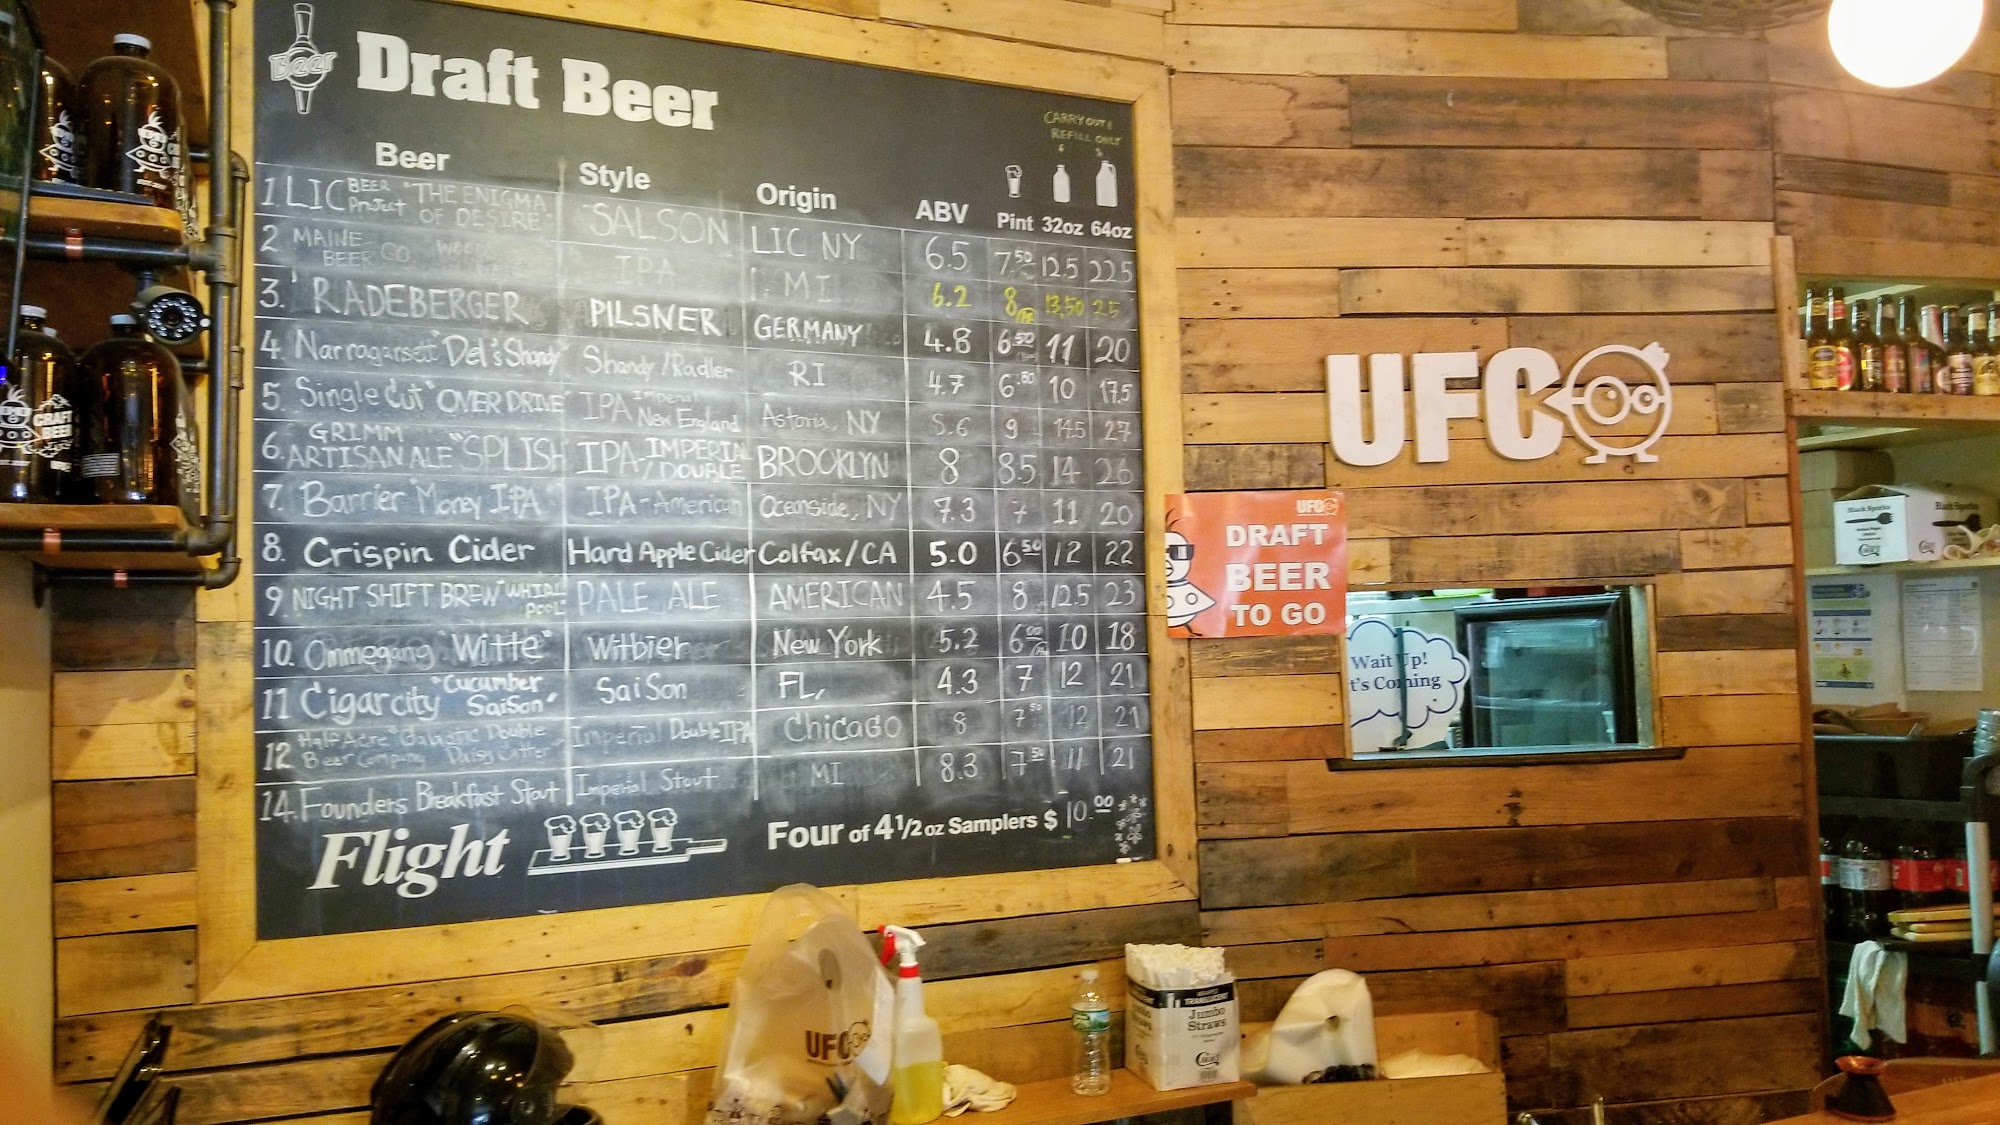 Beer
Draft Beer
CARRY OUT &
REFILL ONLY
Beer Style Origin ABV Pint 32oz 64oz
1 LIC BEER Project "THE ENIGMA OF DESIRE" SAISON LIC NY 6.5 7.50 12.5 22.5
2 MAINE BEER CO. IPA MI 6.2 8 13,50 25
3. RADEBERGER PILSNER GERMANY 4.8 6.50 11 20
4. Narragansett "Del's Shandy" Shandy/Radler RI 4.7 6.50 10 17.5
5. Single Cut "OVER DRIVE" IPA Imperial New England Astoria, NY 8.6 9 14.5 27
6. GRIMM ARTISAN ALE "SPLISH" IPA-IMPERIAL/DOUBLE BROOKLYN 8 8.5 14 26
7. Barrier "Money IPA" IPA-American Oceanside, NY 7.3 7 11 20
8. Crispin Cider Hard Apple Cider Colfax/CA 5.0 6.50 12 22
9 NIGHT SHIFT BREW "WHIRL POOL" PALE ALE AMERICAN 4.5 8 12.5 23
10. Ommegang "Witte" Witbier New York 5.2 6.00 10 18
11 Cigarcity "Cucumber Saison" Saison FL, 4.3 7 12 21
12 Half Acre Beer Company "Galactic Double Daisy Cutter" Imperial Double IPA Chicago 8 7.50 12 21
14. Founders Breakfast Stout Imperial Stout MI 8.3 7.50 11 21
Flight Four of 4 1/2 oz Samplers $ 10.00
UFC
UFC
DRAFT
BEER
TO GO
Wait Up!
t's Coming
CRAFT
BEER
Black Sparks
UFC
TRANSLUCENT
Jumbo
Straws